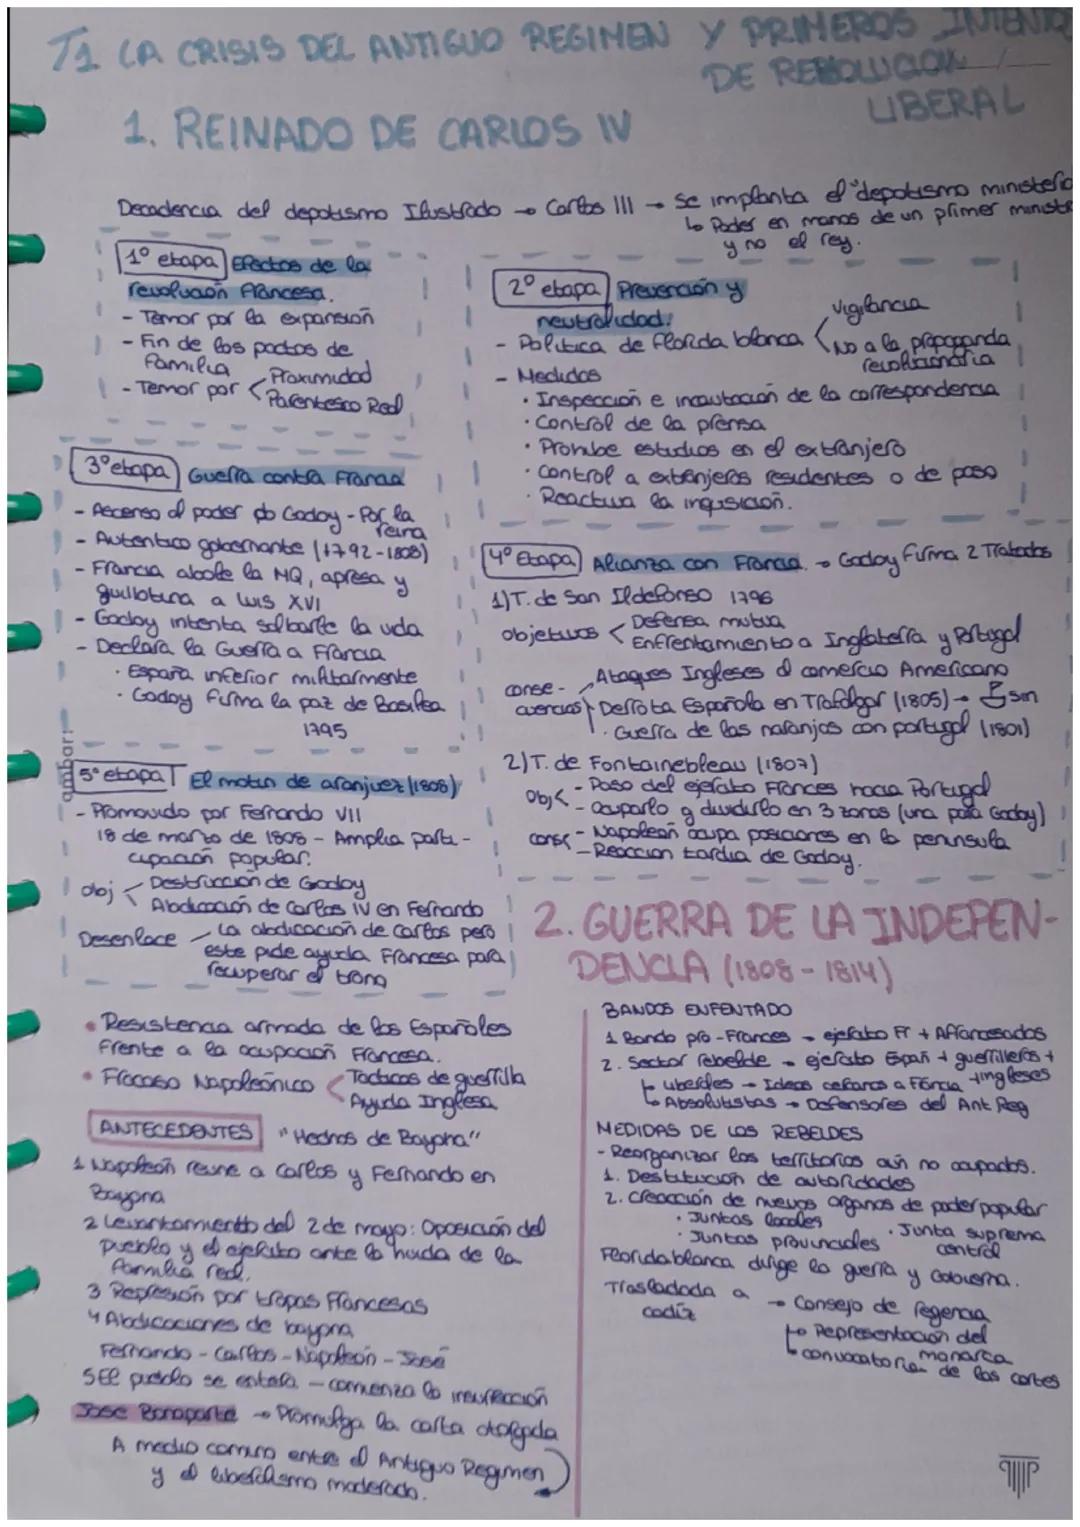 T1 LA CRISIS DEL ANTIGUO REGIMEN Y PRIMEROS INTENTO
DE REBOLUCION
LIBERAL
1. REINADO DE CARLOS IV
Decadencia del depotismo Ilustrado → Carlos III → Se implanta el "depotismo ministeria
↳ Poder en manos de un primer ministr
y no el rey.
1º etapa Efectos de la
revolución francesa.
- Temor por la expansión
- Fin de los pactos de
familia
- Temor por < Proximidad
Parentesco Real
2º etapa Prevención y
neutralidad:
- Politica de florida blanca < vigilancia
No a la propaganda
revolucionaria
- Medidas
· Inspección e incautación de la correspondencia
· Control de la prensa
· Prohibe estudios en el extranjero
· Control a extanjeros residentes o de paso
· Reactiva la inquisición.
3º etapa Guerra contra Francia
- Ascenso al poder do Godoy - Por la
reina
- Autentico gobernante (1792-1808)
- Francia abole la MQ, apresa y
guillotina a Luis XVI
- Godoy intenta salbarle la vida
- Declara la Guerra a Francia
· España inferior militarmente
· Godoy firma la paz de Basilea
1795
4º Etapa Alianza con Francia. → Godoy firma 2 Tratados
1) T. de San Ildefonso 1796
objetivos < Defensa mutua
Enfrentamiento a Inglaterra y Portugal
conse-
cuencias
Ataques Ingleses al comercio Americano
Derrota Española en Trafalgar (1805) → sin
· Guerra de las naranjas con portugal (1801)
2) T. de Fontainebleau (1807)
Obj < - Paso del ejercito Frances hacia Portugal
- ocuparlo y dividirlo en 3 zonas (una para Godoy)
cons < - Napoleón ocupa posiciones en la peninsula
- Reaccion tardia de Godoy.
ambar!
5ª etapa El motin de aranjuez (1808)
- Promovido por Fernando VII
18 de marzo de 1808 - Amplia parti-
cipación popular.
obj < Destrucción de Godoy
Abdicación de Carlos IV en Fernando
Desenlace - La abdicación de Carlos pero
este pide ayuda Francesa para
recuperar el trono
2. GUERRA DE LA INDEPEN-
DENCIA (1808 - 1814)
• Resistencia armada de los Españoles
frente a la ocupación Francesa.
• Fracaso Napoleónico < Tacticas de guerrilla
Ayuda Inglesa
ANTECEDENTES "Hechos de Bayona"
1 Napoleón reune a Carlos y Fernando en
Bayona
2 Levantamiento del 2 de mayo: Oposición del
pueblo y el ejercito ante la huida de la
familia real.
3 Represión por tropas francesas
4 Abdicaciones de bayona
Fernando - Carlos - Napoleón - José
5 El pueblo se entera - comienza la insurrección
Jose Bonaparte → Promulga la carta otorgada
A medio camino entre el Antiguo Regimen
y el liberalismo moderado.
BANDOS ENFENTADO
1 Bando pro-Frances → ejercito Fr + Afrancesados
2. Sector rebelde → ejercito Españ + guerrilleros +
+ingleses
↳ liberales → Ideas cercanas a Francia
↳ Absolutistas → Defensores del Ant Reg
MEDIDAS DE LOS REBELDES
- Reorganizar los territorios aún no ocupados.
1. Destitución de autoridades
2. Creacción de nuevos organos de poder popular
· Juntas locales
· Juntas provinciales · Junta suprema
central
Floridablanca dirige la guerra y Gobierna.
Trasladada a
cadiz
→ Consejo de Regencia
↳ Representación del
monarca
↳ convocatoria de las cortes